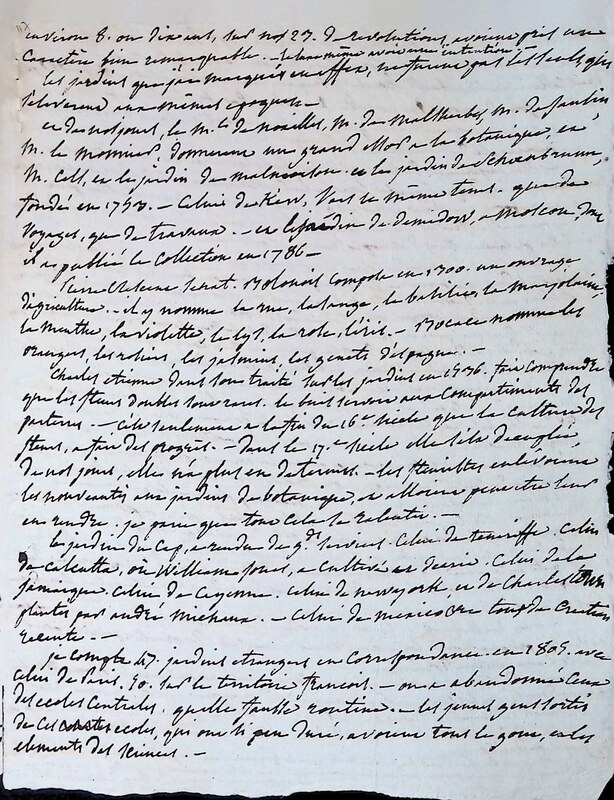 environ 8. ou dix ans, sur nos 23. de revolutions, avoient pris un
caractère bien remarquable. — le luxe même avoit une intention.
les jardins que j'ai marqués en effet, ne furent pas les seuls qui
s'eleverent aux mêmes epoques. —
de nos jours, le M.al de Noailles, M. de Malherbes, M. de Janlin
M. le Monnier, donnerent un grand essor a la botanique, en
M. Cels, et le jardin de malmaison. et le jardin de Schoenbrunn,
fondé en 1753. — Celui de Kew, Vers le même tems. que de
Voyages, que de travaux. — et le jardin de demidow, a Moscou dont
il a publié la Collection en 1786 —
Pierre de Crescent. Bolonois composa en 1300. un ouvrage
d'agriculture. — il y nomme la rue, la sauge, le basilic, la marjolaine,
la menthe, la violette, le lys, la rose, l'iris. — Bocace nomme les
orangers, les rosiers, les jasmins, les genets d'espagne. —
Charles etienne dans son traité sur les jardins en 1536. fait comprendre
que les fleurs doubles sont rares. le buis servoit aux compartiments des
parterres. — C'est seulement a la fin du 16e siècle que la culture des
fleurs, a fait des progrès. — dans le 17.e siècle elle s'est decuplée,
de nos jours, elle n'a plus eu de termes. — les fleuristes enlevoient
les nouveautés aux jardins de botanique, et alloient peut être leur
en rendre. je parie que tout cela se ralentit. —
le jardin du Cap, a rendu de gds services. Celui de teneriffe. Celui
de Calcutta, où William Jones, a cultivé et decrit. Celui de la
jamaique. Celui de Cayenne. Celui de new york, et de Charlestown
plantés par andré Michaux. — Celui de mexico est tous de creation
recente. —
je compte 47. jardins etrangers en correspondance en 1805. avec
celui de Paris, 50. sur le territoire francois. — on a abandonné ceux
des ecoles Centrales. quelle fausse routine. — les jeunes gens sortis
de ces ecoles, qui ont si peu duré, avoient tous le gout, et les
elements des sciences. —